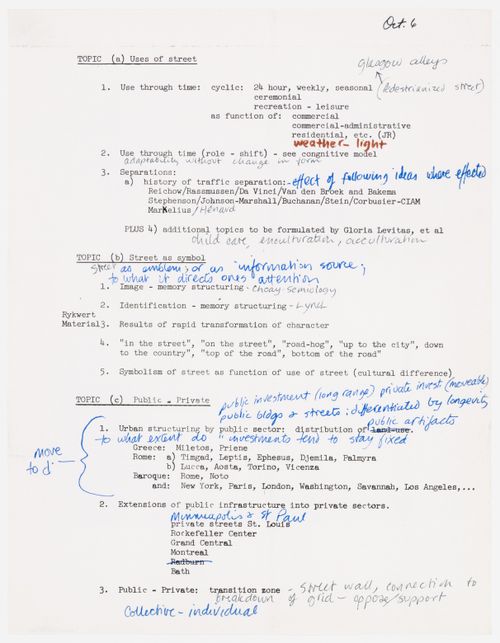 Oct. 6
TOPIC (a) Uses of street
glasgow alleys
1. Use through time: cyclic: 24 hour, weekly, seasonal (pedestrianized street)
ceremonial
recreation - leisure
as function of: commercial
commercial-administrative
residential, etc. (JR)
weather - light
2. Use through time (role - shift) - see congnitive model
adaptability without change in form
3. Separations:
a) history of traffic separation: - effect of following ideas where effected
Reichow/Rassmussen/Da Vinci/Van den Broek and Bakema
Stephenson/Johnson-Marshall/Buchanan/Stein/Corbusier-CIAM
Markelius/Hénard
PLUS 4) additional topics to be formulated by Gloria Levitas, et al
child care, enculturation, acculturation
TOPIC (b) Street as symbol
street as emblem; or as information source;
to what it directs ones attention
1. Image - memory structuring - Choay-semiology
2. Identification - memory structuring - Lynch
Rykwert
Material
3. Results of rapid transformation of character
4. "in the street", "on the street", "road-hog", "up to the city", down
to the country", "top of the road", bottom of the road"
5. Symbolism of street as function of use of street (cultural difference)
TOPIC (c) Public - Private
public investment (long range) private invest (moveable)
public bldgs & streets: differentiated by longevity
public artifacts
1. Urban structuring by public sector: distribution of land-use.
to what extent do " investments tend to stay fixed
Greece: Miletos, Priene
move
to d.
Rome: a) Timgad, Leptis, Ephesus, Djemila, Palmyra
b) Lucca, Aosta, Torino, Vicenza
Baroque: Rome, Noto
and: New York, Paris, London, Washington, Savannah, Los Angeles,...
2. Extensions of public infrastructure into private sectors.
Minneapolis & St Paul
private streets St. Louis
Rorkefeller Center
Grand Central
Montreal
Radburn
Bath
3. Public - Private: transition zone - street wall, connection to
breakdown of grid - oppose/support
Collective - individual